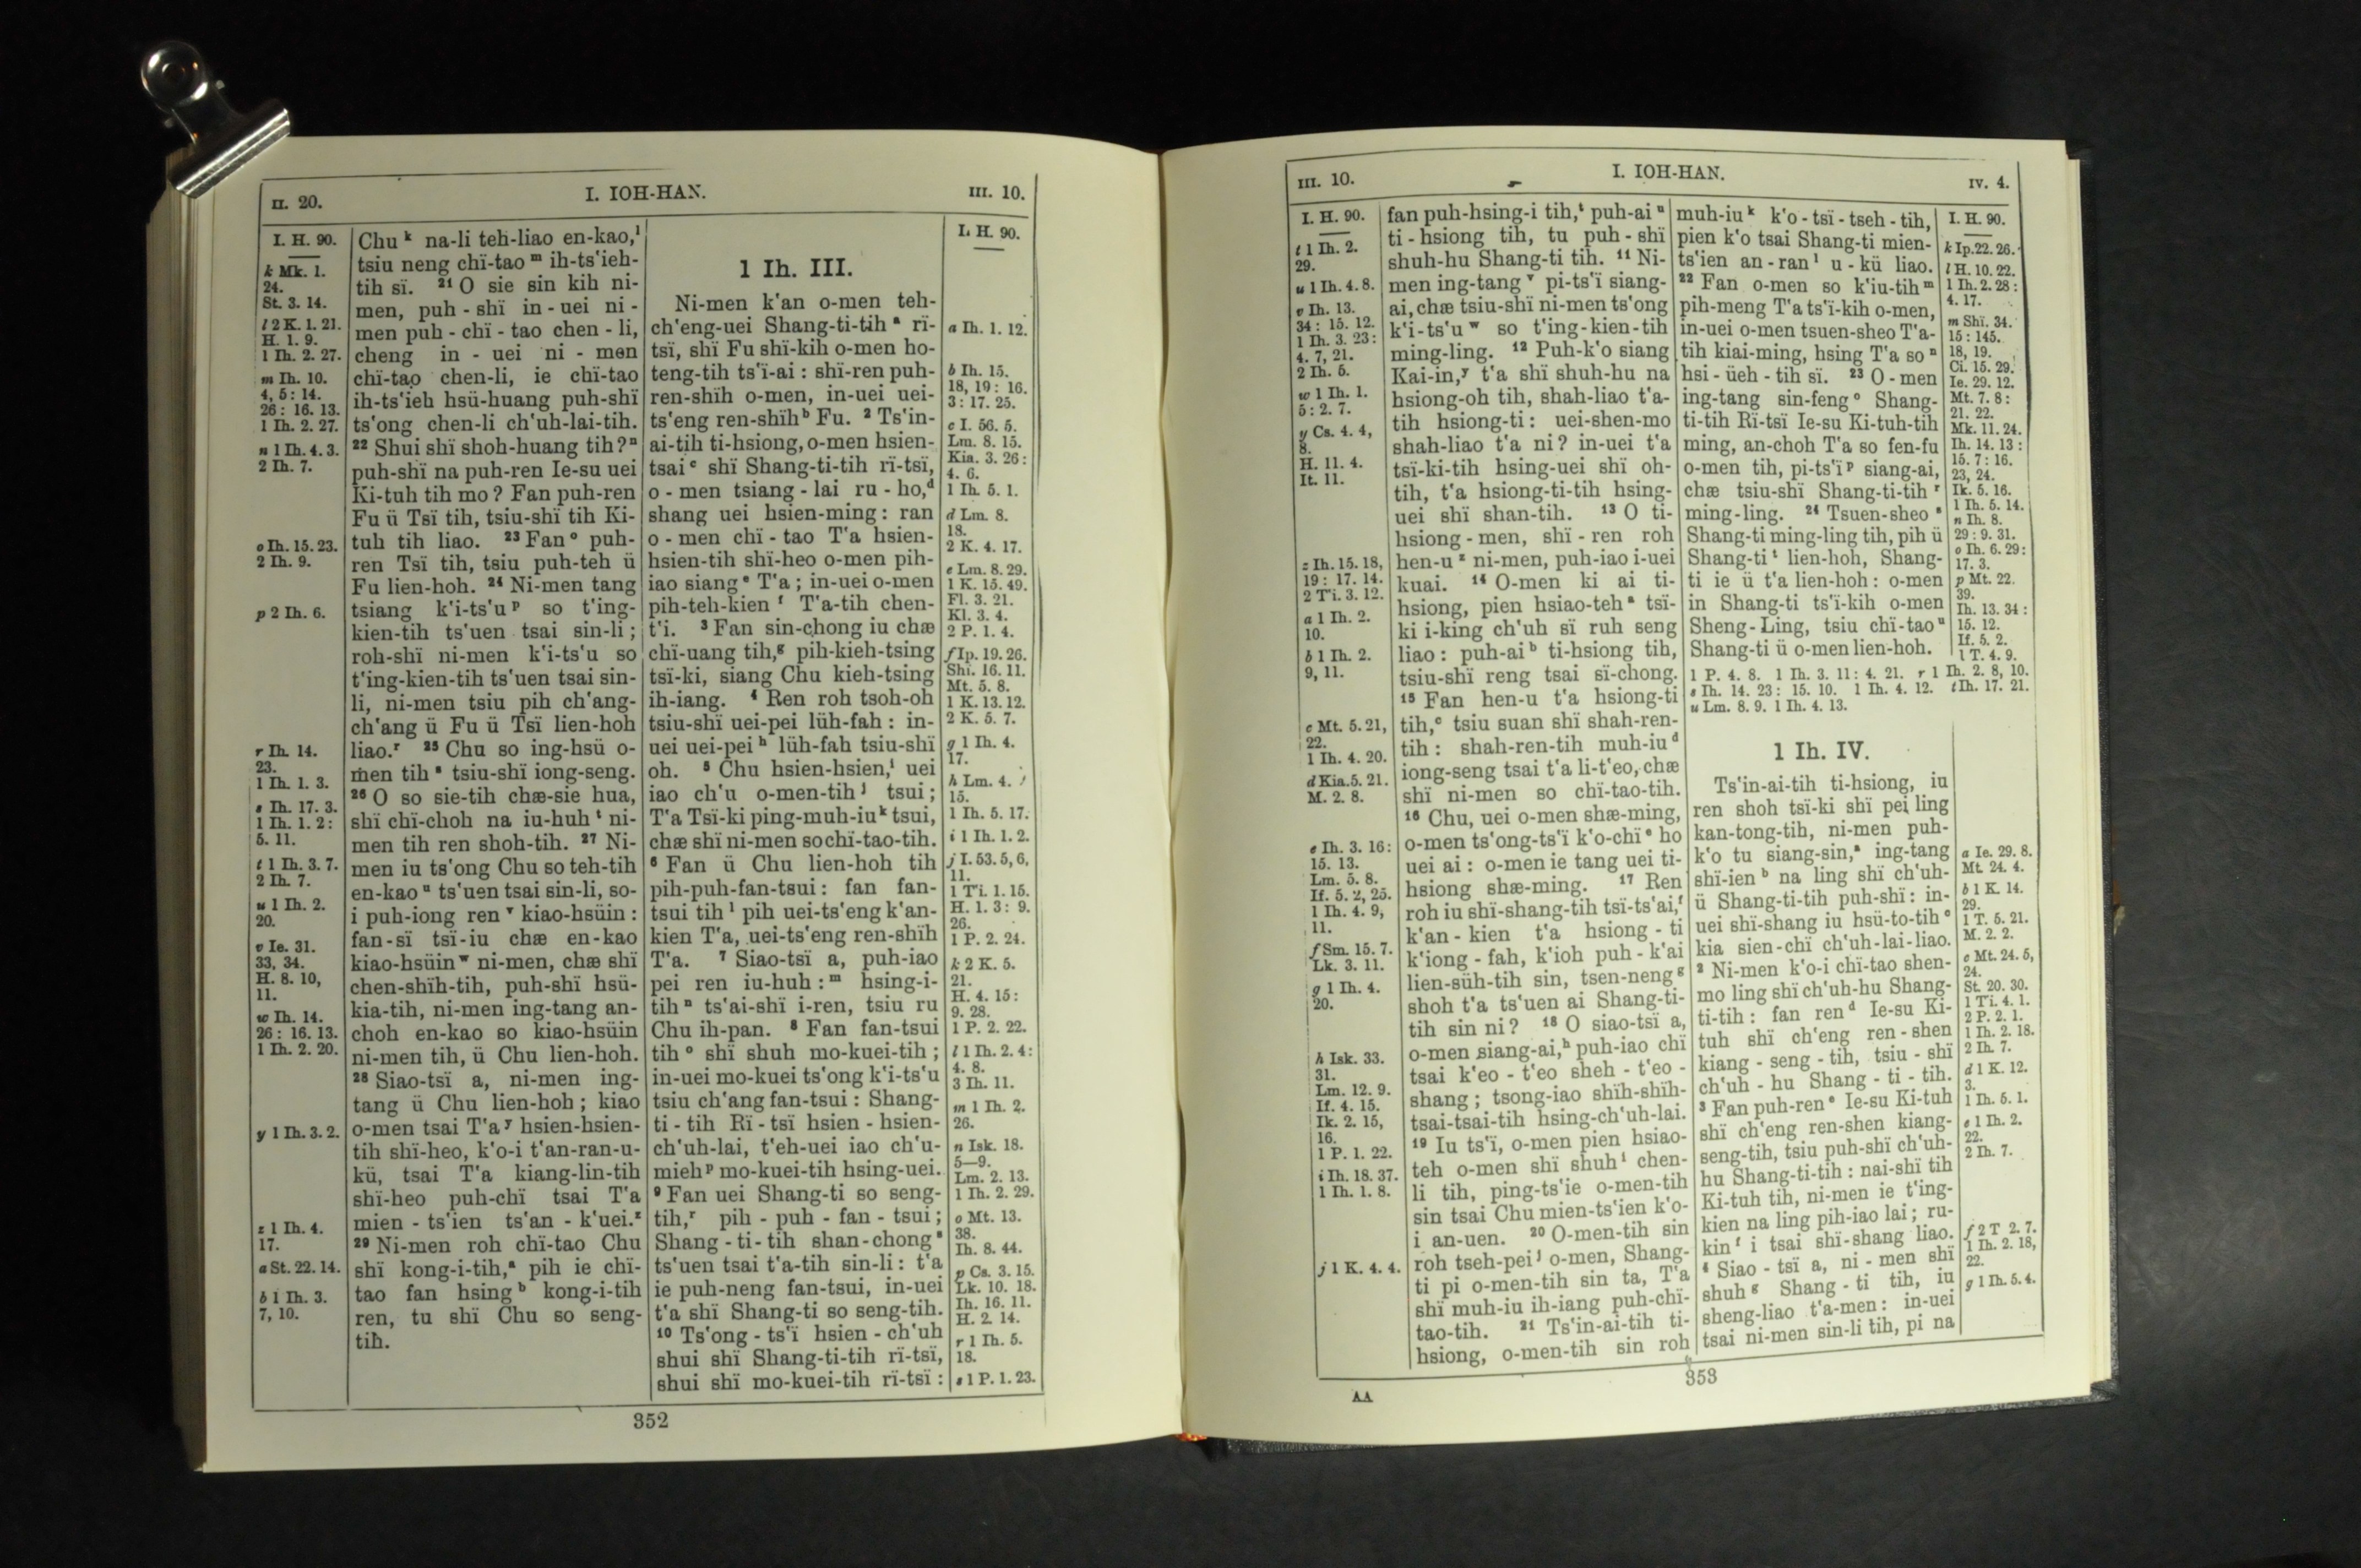 II. 20.
I. IOH-HAN.
III. 10.
I. H. 90.
k Mk. 1.
24.
St. 3. 14.
l 2 K. 1. 21.
H. 1. 9.
1 Ih. 2. 27.
m Ih. 10.
4, 5: 14.
26: 16. 13.
1 Ih. 2. 27.
n 1 Ih. 4. 3.
2 Ih. 7.
o Ih. 15. 23.
2 Ih. 9.
p 2 Ih. 6.
r Ih. 14.
23.
1 Ih. 1. 3.
s Ih. 17. 3.
1 Ih. 1. 2:
5. 11.
t 1 Ih. 3. 7.
2 Ih. 7.
u 1 Ih. 2.
20.
v Ie. 31.
33, 34.
H. 8. 10,
11.
w Ih. 14.
26: 16. 13.
1 Ih. 2. 20.
y 1 Ih. 3. 2.
z 1 Ih. 4.
17.
a St. 22. 14.
b 1 Ih. 3.
7, 10.
Chu k na-li teh-liao en-kao, l
tsiu neng chï-tao m ih-ts'ieh-
tih sï. 21 O sie sin kih ni-
men, puh - shï in - uei ni -
men puh - chï - tao chen - li,
cheng in - uei ni - men
chï-tao chen-li, ie chï-tao
ih-ts'ieh hsü-huang puh-shï
ts'ong chen-li ch'uh-lai-tih.
22 Shui shï shoh-huang tih? n
puh-shï na puh-ren Ie-su uei
Ki-tuh tih mo? Fan puh-ren
Fu ü Tsï tih, tsiu-shï tih Ki-
tuh tih liao. 23 Fan o puh-
ren Tsï tih, tsiu puh-teh ü
Fu lien-hoh. 24 Ni-men tang
tsiang k'i-ts'u p so t'ing-
kien-tih ts'uen tsai sin-li;
roh-shï ni-men k'i-ts'u so
t'ing-kien-tih ts'uen tsai sin-
li, ni-men tsiu pih ch'ang-
ch'ang ü Fu ü Tsï lien-hoh
liao. r 25 Chu so ing-hsü o-
men tih s tsiu-shï iong-seng.
26 O so sie-tih chæ-sie hua,
shï chï-choh na iu-huh t ni-
men tih ren shoh-tih. 27 Ni-
men iu ts'ong Chu so teh-tih
en-kao u ts'uen tsai sin-li, so-
i puh-iong ren v kiao-hsüin:
fan-sï tsï-iu chæ en-kao
kiao-hsüin w ni-men, chæ shï
chen-shïh-tih, puh-shï hsü-
kia-tih, ni-men ing-tang an-
choh en-kao so kiao-hsüin
ni-men tih, ü Chu lien-hoh.
28 Siao-tsï a, ni-men ing-
tang ü Chu lien-hoh; kiao
o-men tsai T'a y hsien-hsien-
tih shï-heo, k'o-i t'an-ran-u-
kü, tsai T'a kiang-lin-tih
shï-heo puh-chï tsai T'a
mien - ts'ien ts'an - k'uei. z
29 Ni-men roh chï-tao Chu
shï kong-i-tih, a pih ie chï-
tao fan hsing b kong-i-tih
ren, tu shï Chu so seng-
tih.
1 Ih. III.
Ni-men k'an o-men teh-
ch'eng-uei Shang-ti-tih a rï-
tsï, shï Fu shï-kih o-men ho-
teng-tih ts'ï-ai: shï-ren puh-
ren-shïh o-men, in-uei uei-
ts'eng ren-shïh b Fu. 2 Ts'in-
ai-tih ti-hsiong, o-men hsien-
tsai c shï Shang-ti-tih rï-tsï,
o - men tsiang - lai ru - ho, d
shang uei hsien-ming: ran
o - men chï - tao T'a hsien-
hsien-tih shï-heo o-men pih-
iao siang e T'a; in-uei o-men
pih-teh-kien f T'a-tih chen-
t'i. 3 Fan sin-chong iu chæ
chï-uang tih, g pih-kieh-tsing
tsï-ki, siang Chu kieh-tsing
ih-iang. 4 Ren roh tsoh-oh
tsiu-shï uei-pei lüh-fah: in-
uei uei-pei h lüh-fah tsiu-shï
oh. 5 Chu hsien-hsien, i uei
iao ch'u o-men-tih j tsui;
T'a Tsï-ki ping-muh-iu k tsui,
chæ shï ni-men so chï-tao-tih.
6 Fan ü Chu lien-hoh tih
pih-puh-fan-tsui: fan fan-
tsui tih l pih uei-ts'eng k'an-
kien T'a, uei-ts'eng ren-shïh
T'a. 7 Siao-tsï a, puh-iao
pei ren iu-huh: m hsing-i-
tih n ts'ai-shï i-ren, tsiu ru
Chu ih-pan. 8 Fan fan-tsui
tih o shï shuh mo-kuei-tih;
in-uei mo-kuei ts'ong k'i-ts'u
tsiu ch'ang fan-tsui: Shang-
ti - tih Rï - tsï hsien - hsien-
ch'uh-lai, t'eh-uei iao ch'u-
mieh p mo-kuei-tih hsing-uei.
9 Fan uei Shang-ti so seng-
tih, r pih - puh - fan - tsui;
Shang - ti - tih shan-chong s
ts'uen tsai t'a-tih sin-li: t'a
ie puh-neng fan-tsui, in-uei
t'a shï Shang-ti so seng-tih.
10 Ts'ong - ts'ï hsien - ch'uh
shui shï Shang-ti-tih rï-tsï,
shui shï mo-kuei-tih rï-tsï:
I. H. 90.
a Ih. 1. 12.
b Ih. 15.
18, 19: 16.
3: 17. 25.
c I. 56. 5.
Lm. 8. 15.
Kia. 3. 26:
4. 6.
1 Ih. 5. 1.
d Lm. 8.
18.
2 K. 4. 17.
e Lm. 8. 29.
1 K. 15. 49.
Fl. 3. 21.
Kl. 3. 4.
2 P. 1. 4.
f Ip. 19. 26.
Shï. 16. 11.
Mt. 5. 8.
1 K. 13. 12.
2 K. 5. 7.
g 1 Ih. 4.
17.
h Lm. 4.
15.
1 Ih. 5. 17.
i 1 Ih. 1. 2.
j I. 53. 5, 6,
11.
1 Ti. 1. 15.
H. 1. 3: 9.
26.
1 P. 2. 24.
k 2 K. 5.
21.
H. 4. 15:
9. 28.
1 P. 2. 22.
l 1 Ih. 2. 4:
4. 8.
3 Ih. 11.
m 1 Ih. 2.
26.
n Isk. 18.
5—9.
Lm. 2. 13.
1 Ih. 2. 29.
o Mt. 13.
38.
Ih. 8. 44.
p Cs. 3. 15.
Lk. 10. 18.
Ih. 16. 11.
H. 2. 14.
r 1 Ih. 5.
18.
s 1 P. 1. 23.
352
III. 10.
I. IOH-HAN.
IV. 4.
I. H. 90.
t 1 Ih. 2.
29.
u 1 Ih. 4. 8.
v Ih. 13.
34: 15. 12.
1 Ih. 3. 23:
4. 7, 21.
2 Ih. 5.
w 1 Ih. 1.
5: 2. 7.
y Cs. 4. 4,
8.
H. 11. 4.
It. 11.
z Ih. 15. 18,
19: 17. 14.
2 Ti. 3. 12.
a 1 Ih. 2.
10.
b 1 Ih. 2.
9, 11.
c Mt. 5. 21,
22.
1 Ih. 4. 20.
d Kia. 5. 21.
M. 2. 8.
e Ih. 3. 16:
15. 13.
Lm. 5. 8.
If. 5. 2, 25.
1 Ih. 4. 9,
11.
f Sm. 15. 7.
Lk. 3. 11.
g 1 Ih. 4.
20.
h Isk. 33.
31.
Lm. 12. 9.
If. 4. 15.
Ik. 2. 15,
16.
1 P. 1. 22.
i Ih. 18. 37.
1 Ih. 1. 8.
j 1 K. 4. 4.
fan puh-hsing-i tih, t puh-ai u
ti - hsiong tih, tu puh - shï
shuh-hu Shang-ti tih. 11 Ni-
men ing-tang v pi-ts'ï siang-
ai, chæ tsiu-shï ni-men ts'ong
k'i-ts'u w so t'ing-kien-tih
ming-ling. 12 Puh-k'o siang
Kai-in, y t'a shï shuh-hu na
hsiong-oh tih, shah-liao t'a-
tih hsiong-ti: uei-shen-mo
shah-liao t'a ni? in-uei t'a
tsï-ki-tih hsing-uei shï oh-
tih, t'a hsiong-ti-tih hsing-
uei shï shan-tih. 13 O ti-
hsiong - men, shï - ren roh
hen-u z ni-men, puh-iao i-uei
kuai. 14 O-men ki ai ti-
hsiong, pien hsiao-teh a tsï-
ki i-king ch'uh sï ruh seng
liao: puh-ai b ti-hsiong tih,
tsiu-shï reng tsai sï-chong.
15 Fan hen-u t'a hsiong-ti
tih, c tsiu suan shï shah-ren-
tih: shah-ren-tih muh-iu d
iong-seng tsai t'a li-t'eo, chæ
shï ni-men so chï-tao-tih.
16 Chu, uei o-men shæ-ming,
o-men ts'ong-ts'ï k'o-chï e ho
uei ai: o-men ie tang uei ti-
hsiong shæ-ming. 17 Ren
roh iu shï-shang-tih tsï-ts'ai, f
k'an - kien t'a hsiong - ti
k'iong - fah, k'ioh puh - k'ai
lien-süh-tih sin, tsen-neng g
shoh t'a ts'uen ai Shang-ti-
tih sin ni? 18 O siao-tsï a,
o-men siang-ai, h puh-iao chï
tsai k'eo - t'eo sheh - t'eo -
shang; tsong-iao shïh-shïh-
tsai-tsai-tih hsing-ch'uh-lai.
19 Iu ts'ï, o-men pien hsiao-
teh o-men shï shuh i chen-
li tih, ping-ts'ie o-men-tih
sin tsai Chu mien-ts'ien k'o-
i an-uen. 20 O-men-tih sin
roh tseh-pei j o-men, Shang-
ti pi o-men-tih sin ta, T'a
shï muh-iu ih-iang puh-chï-
tao-tih. 21 Ts'in-ai-tih ti-
hsiong, o-men-tih sin roh
muh-iu k k'o - tsï - tseh - tih,
pien k'o tsai Shang-ti mien-
ts'ien an - ran l u - kü liao.
22 Fan o-men so k'iu-tih m
pih-meng T'a ts'ï-kih o-men,
in-uei o-men tsuen-sheo T'a-
tih kiai-ming, hsing T'a so n
hsi - üeh - tih sï. 23 O - men
ing-tang sin-feng o Shang-
ti-tih Rï-tsï Ie-su Ki-tuh-tih
ming, an-choh T'a so fen-fu
o-men tih, pi-ts'ï p siang-ai,
chæ tsiu-shï Shang-ti-tih r
ming-ling. 24 Tsuen-sheo s
Shang-ti ming-ling tih, pih ü
Shang-ti t lien-hoh, Shang-
ti ie ü t'a lien-hoh: o-men
in Shang-ti ts'ï-kih o-men
Sheng-Ling, tsiu chï-tao u
Shang-ti ü o-men lien-hoh.
1 P. 4. 8. 1 Ih. 3. 11: 4. 21. r 1 Ih. 2. 8, 10.
s Ih. 14. 23: 15. 10. 1 Ih. 4. 12. t Ih. 17. 21.
u Lm. 8. 9. 1 Ih. 4. 13.
1 Ih. IV.
Ts'in-ai-tih ti-hsiong, iu
ren shoh tsï-ki shï pei ling
kan-tong-tih, ni-men puh-
k'o tu siang-sin, a ing-tang
shï-ien b na ling shï ch'uh-
ü Shang-ti-tih puh-shï: in-
uei shï-shang iu hsü-to-tih c
kia sien-chï ch'uh-lai-liao.
2 Ni-men k'o-i chï-tao shen-
mo ling shï ch'uh-hu Shang-
ti-tih: fan ren d Ie-su Ki-
tuh shï ch'eng ren - shen
kiang - seng - tih, tsiu - shï
ch'uh - hu Shang - ti - tih.
3 Fan puh-ren e Ie-su Ki-tuh
shï ch'eng ren-shen kiang-
seng-tih, tsiu puh-shï ch'uh-
hu Shang-ti-tih: nai-shï tih
Ki-tuh tih, ni-men ie t'ing-
kien na ling pih-iao lai; ru-
kin f i tsai shï-shang liao.
4 Siao - tsï a, ni - men shï
shuh g Shang - ti tih, iu
sheng-liao t'a-men: in-uei
tsai ni-men sin-li tih, pi na
I. H. 90.
k Ip. 22. 26.
l H. 10. 22.
1 Ih. 2. 28:
4. 17.
m Shï. 34.
15: 145.
18, 19.
Ci. 15. 29.
Ie. 29. 12.
Mt. 7. 8:
21. 22.
Mk. 11. 24.
Ih. 14. 13:
15. 7: 16.
23, 24.
Ik. 5. 16.
1 Ih. 5. 14.
n Ih. 8.
29: 9. 31.
o Ih. 6. 29:
17. 3.
p Mt. 22.
39.
Ih. 13. 34:
15. 12.
If. 5. 2.
1 T. 4. 9.
a Ie. 29. 8.
Mt. 24. 4.
b 1 K. 14.
29.
1 T. 5. 21.
M. 2. 2.
c Mt. 24. 5,
24.
St. 20. 30.
1 Ti. 4. 1.
2 P. 2. 1.
1 Ih. 2. 18.
2 Ih. 7.
d 1 K. 12.
3.
1 Ih. 5. 1.
e 1 Ih. 2.
22.
2 Ih. 7.
f 2 T 2. 7.
1 Ih. 2. 18,
22.
g 1 Ih. 5. 4.
353
AA